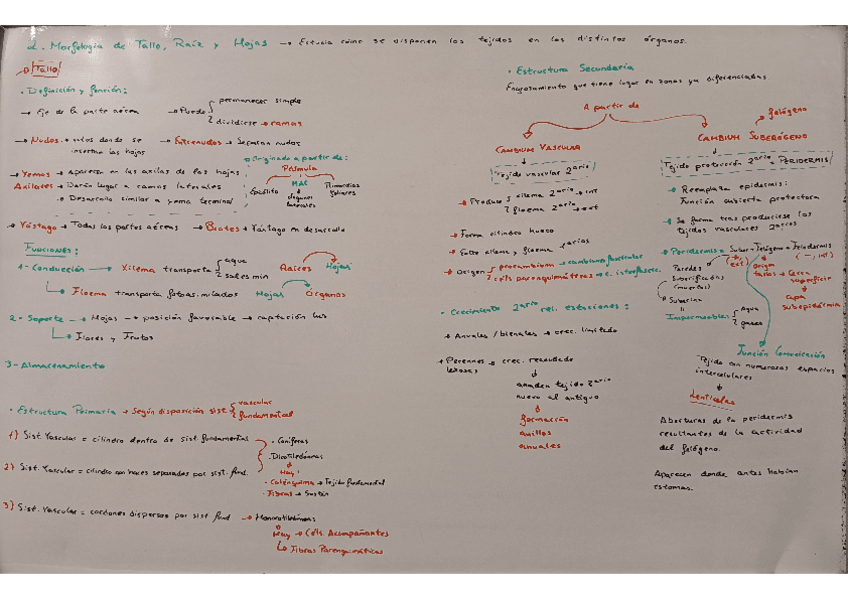 2. Morfología de Tallo, Raíz y Hojas → Estudia cómo se disponen los tejidos en los distintos órganos.
→ Tallo
• Definición y función:
→ Eje de la parte aérea → Puede permanecer simple
dividirse → ramas
→ Nudos • sitios donde se insertan las hojas → Entrenudos → Separan nudos
→ Yemas Axilares • Aparecen en las axilas de las hojas
→ Darán lugar a ramas laterales
• Desarrollo similar a yema terminal
Originado a partir de:
Plúmula
Epicótilo
MAC
órganos laterales
Primordios foliares
→ Vástago → Todas las partes aéreas → Brotes → Vástago en desarrollo
Funciones:
1 - Conducción → Xilema transporta agua
sales min
Raíces Hojas
Floema transporta fotoasimilados Hojas Órganos
2 - Soporte → Hojas → posición favorable → captación luz
Flores y Frutos
3 - Almacenamiento
• Estructura Primaria → Según disposición sist vascular
fundamental
1) Sist. Vascular = cilindro dentro de sist fundamental
2) Sist. Vascular = cilindro con haces separados por sist. fund.
• Coníferas
• Dicotiledóneas
Hay:
• Colénquima → Tejido fundamental
• Fibras → Sostén
3) Sist. Vascular = cordones dispersos por sist fund → Monocotiledóneas
Hay → Céls. Acompañantes
Fibras Parenquimáticas
• Estructura Secundaria
Engrosamiento que tiene lugar en zonas ya diferenciadas
A partir de
CAMBIUM VASCULAR
Tejido vascular 2ario
• Produce xilema 2ario → int
floema 2ario → ext
→ Forma cilindro hueco
• Entre xilema y floema 1arios
• Origen procambium → cambium fascicular
céls parenquimáticas → c. interfascic.
• Crecimiento 2ario rel. estaciones:
• Anuales / bienales → crec. limitado
• Perennes leñosas → crec. reanudado
añaden tejido 2ario nuevo al antiguo
formación anillos anuales
felógeno
CAMBIUM SUBERÓGENO
Tejido protección 2ario → PERIDERMIS
→ Reemplaza epidermis: Función cubierta protectora
→ Se forma tras producirse los tejidos vasculares 2arios
• Peridermis = Suber + Felógeno + Felodermis
(+, ext)
(-, int)
Paredes suberificadas (muertas)
• Suberina
Impermeables Agua
gases
Origen
tallos → Cerca superficie
capa subepidérmica
Función Comunicación
Tejido con numerosos espacios intercelulares
Lenticelas
Aberturas de la peridermis
resultantes de la actividad
del felógeno.
Aparecen donde antes habían
estomas.